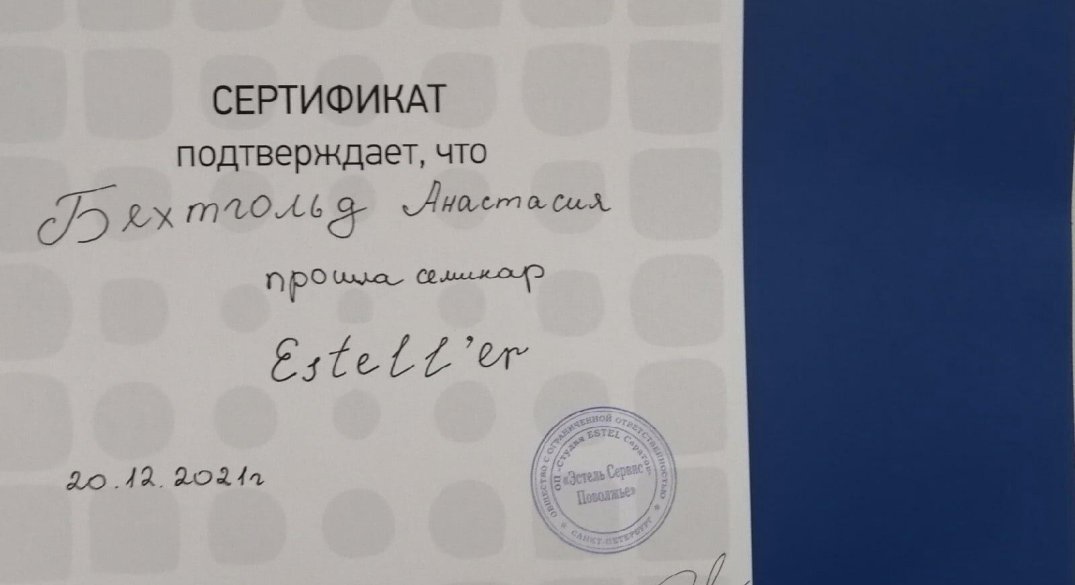 СЕРТИФИКАТ
подтверждает, что
Бехтгольд Анастасия
прошла семинар
Estell'er
20.12.2021г
ОБЩЕСТВО С ОГРАНИЧЕННОЙ ОТВЕТСТВЕННОСТЬЮ
ОП «Студия ESTEL Саратов»
«Эстель Сервис Поволжье»
САНКТ-ПЕТЕРБУРГ